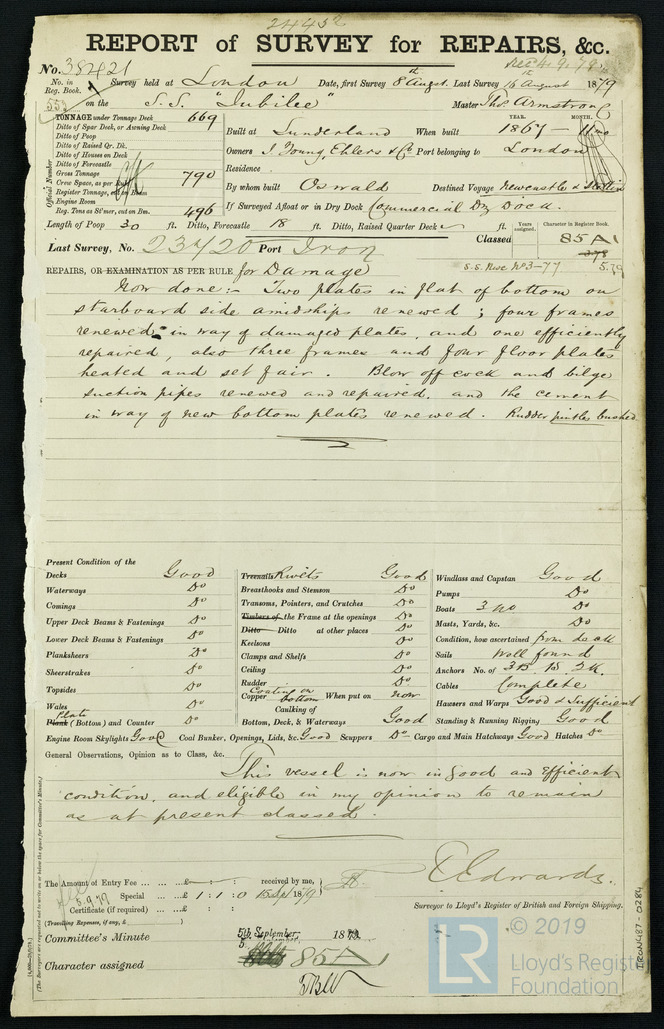 24452
REPORT of SURVEY for REPAIRS, &c.
No. 38421
No. in Reg. Book. Survey held at London Date, first Survey 8th Augst. Last Survey 16th August 1879
552 on the S.S. "Jubilee" Master Thos Armstrong
TONNAGE under Tonnage Deck 669
Ditto of Spar Deck, or Awning Deck
Ditto of Poop
Ditto of Raised Qr. Dk.
Ditto of Houses on Deck
Ditto of Forecastle
Gross Tonnage 790
Crew Space, as per Rule
Register Tonnage, cut on Beam
Engine Room
Reg. Tons as St'mer, cut on Bm. 496
Official Number
YEAR. MONTH.
Built at Sunderland When built 1867 - 11 mo
Owners J. Young, Ehlers & Co Port belonging to London
Residence
By whom built Oswald Destined Voyage Newcastle &
If Surveyed Afloat or in Dry Dock Commercial Dry Dock.
Length of Poop 30 ft. Ditto, Forecastle 18 ft. Ditto, Raised Quarter Deck ft.
Years assigned. Character in Register Book.
Classed 85 A1
3.78
5.79
Last Survey, No. 23420 Port Iron
S.S. No 3-77
REPAIRS, OR EXAMINATION AS PER RULE for Damage
Now done:- Two plates in flat of bottom on
starboard side amidships renewed; four frames
renewed in way of damaged plates, and one efficiently
repaired, also three frames and four floor plates
heated and set fair. Blow off cock and bilge
suction pipes renewed and repaired, and the cement
in way of new bottom plates renewed. Rudder pintles bushed
Present Condition of the
Decks Good
Waterways Do
Comings Do
Upper Deck Beams & Fastenings Do
Lower Deck Beams & Fastenings Do
Planksheers Do
Sheerstrakes Do
Topsides Do
Wales Do
Plate
Plank (Bottom) and Counter Do
Treenails Rivets Good
Breasthooks and Stemson Do
Transoms, Pointers, and Crutches Do
Timbers of the Frame at the openings Do
Ditto Ditto at other places Do
Keelsons Do
Clamps and Shelfs Do
Ceiling Do
Rudder Do
Coating on bottom
Copper When put on now
Caulking of
Bottom, Deck, & Waterways Good
Windlass and Capstan Good
Pumps Do
Boats 3 no Do
Masts, Yards, &c. Do
Condition, how ascertained from deck
Sails Well found
Anchors No. of 3B. 1S. 2K.
Cables Complete
Hawsers and Warps Good & Sufficient
Standing & Running Rigging Good
Engine Room Skylights Good Coal Bunker, Openings, Lids, &c. Good Scuppers Do Cargo and Main Hatchways Good Hatches Do
General Observations, Opinion as to Class, &c.
This vessel is now in good and efficient
condition, and eligible in my opinion to remain
as at present classed.
The Amount of Entry Fee ... ... £ : : received by me,
5.9.79 Special ... £ 1 : 1 : 0 15 Sep 1879
Certificate (if required) ... £ :
(Travelling Expenses, if any, £ )
E Edwards.
Surveyor to Lloyd's Register of British and Foreign Shipping.
Committee's Minute 5th September, 1879.
Character assigned 85 A
(The Surveyors are requested not to write on or below the space for Committee's Minute.)
IRON487-0284
LR
© 2019
Lloyd's Register
Foundation